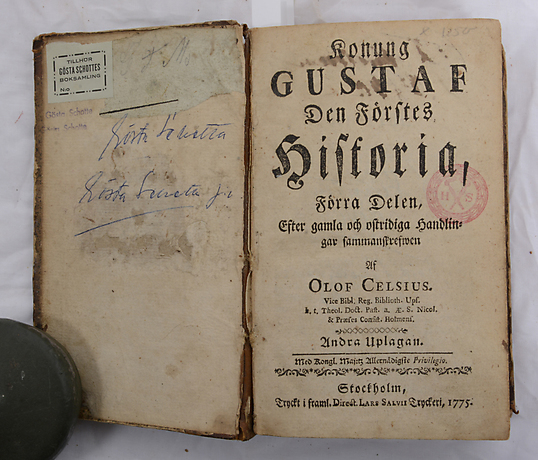 TILLHÖR
GÖSTA SCHOTTES
BOKSAMLING
N:o
Gösta Schotte
Gösta Schotte
Gösta Schotte jr.
Konung
GUSTAF
Den Förstes
Historia,
Förra Delen,
Efter gamla och ostridiga Handlin-
gar sammanskrefwen
Af
OLOF CELSIUS.
Vice Bibl. Reg. Biblioth. Upf.
h. t. Theol. Doct. Past. a. Æ. S. Nicol.
& Præses Consist. Holmens.
Andra Uplagan.
Med Kongl. Maj:tz Allernådigste Privilegio.
Stockholm,
Tryckt i framl. Direct. LARS SALVII Tryckeri, 1775.
H S